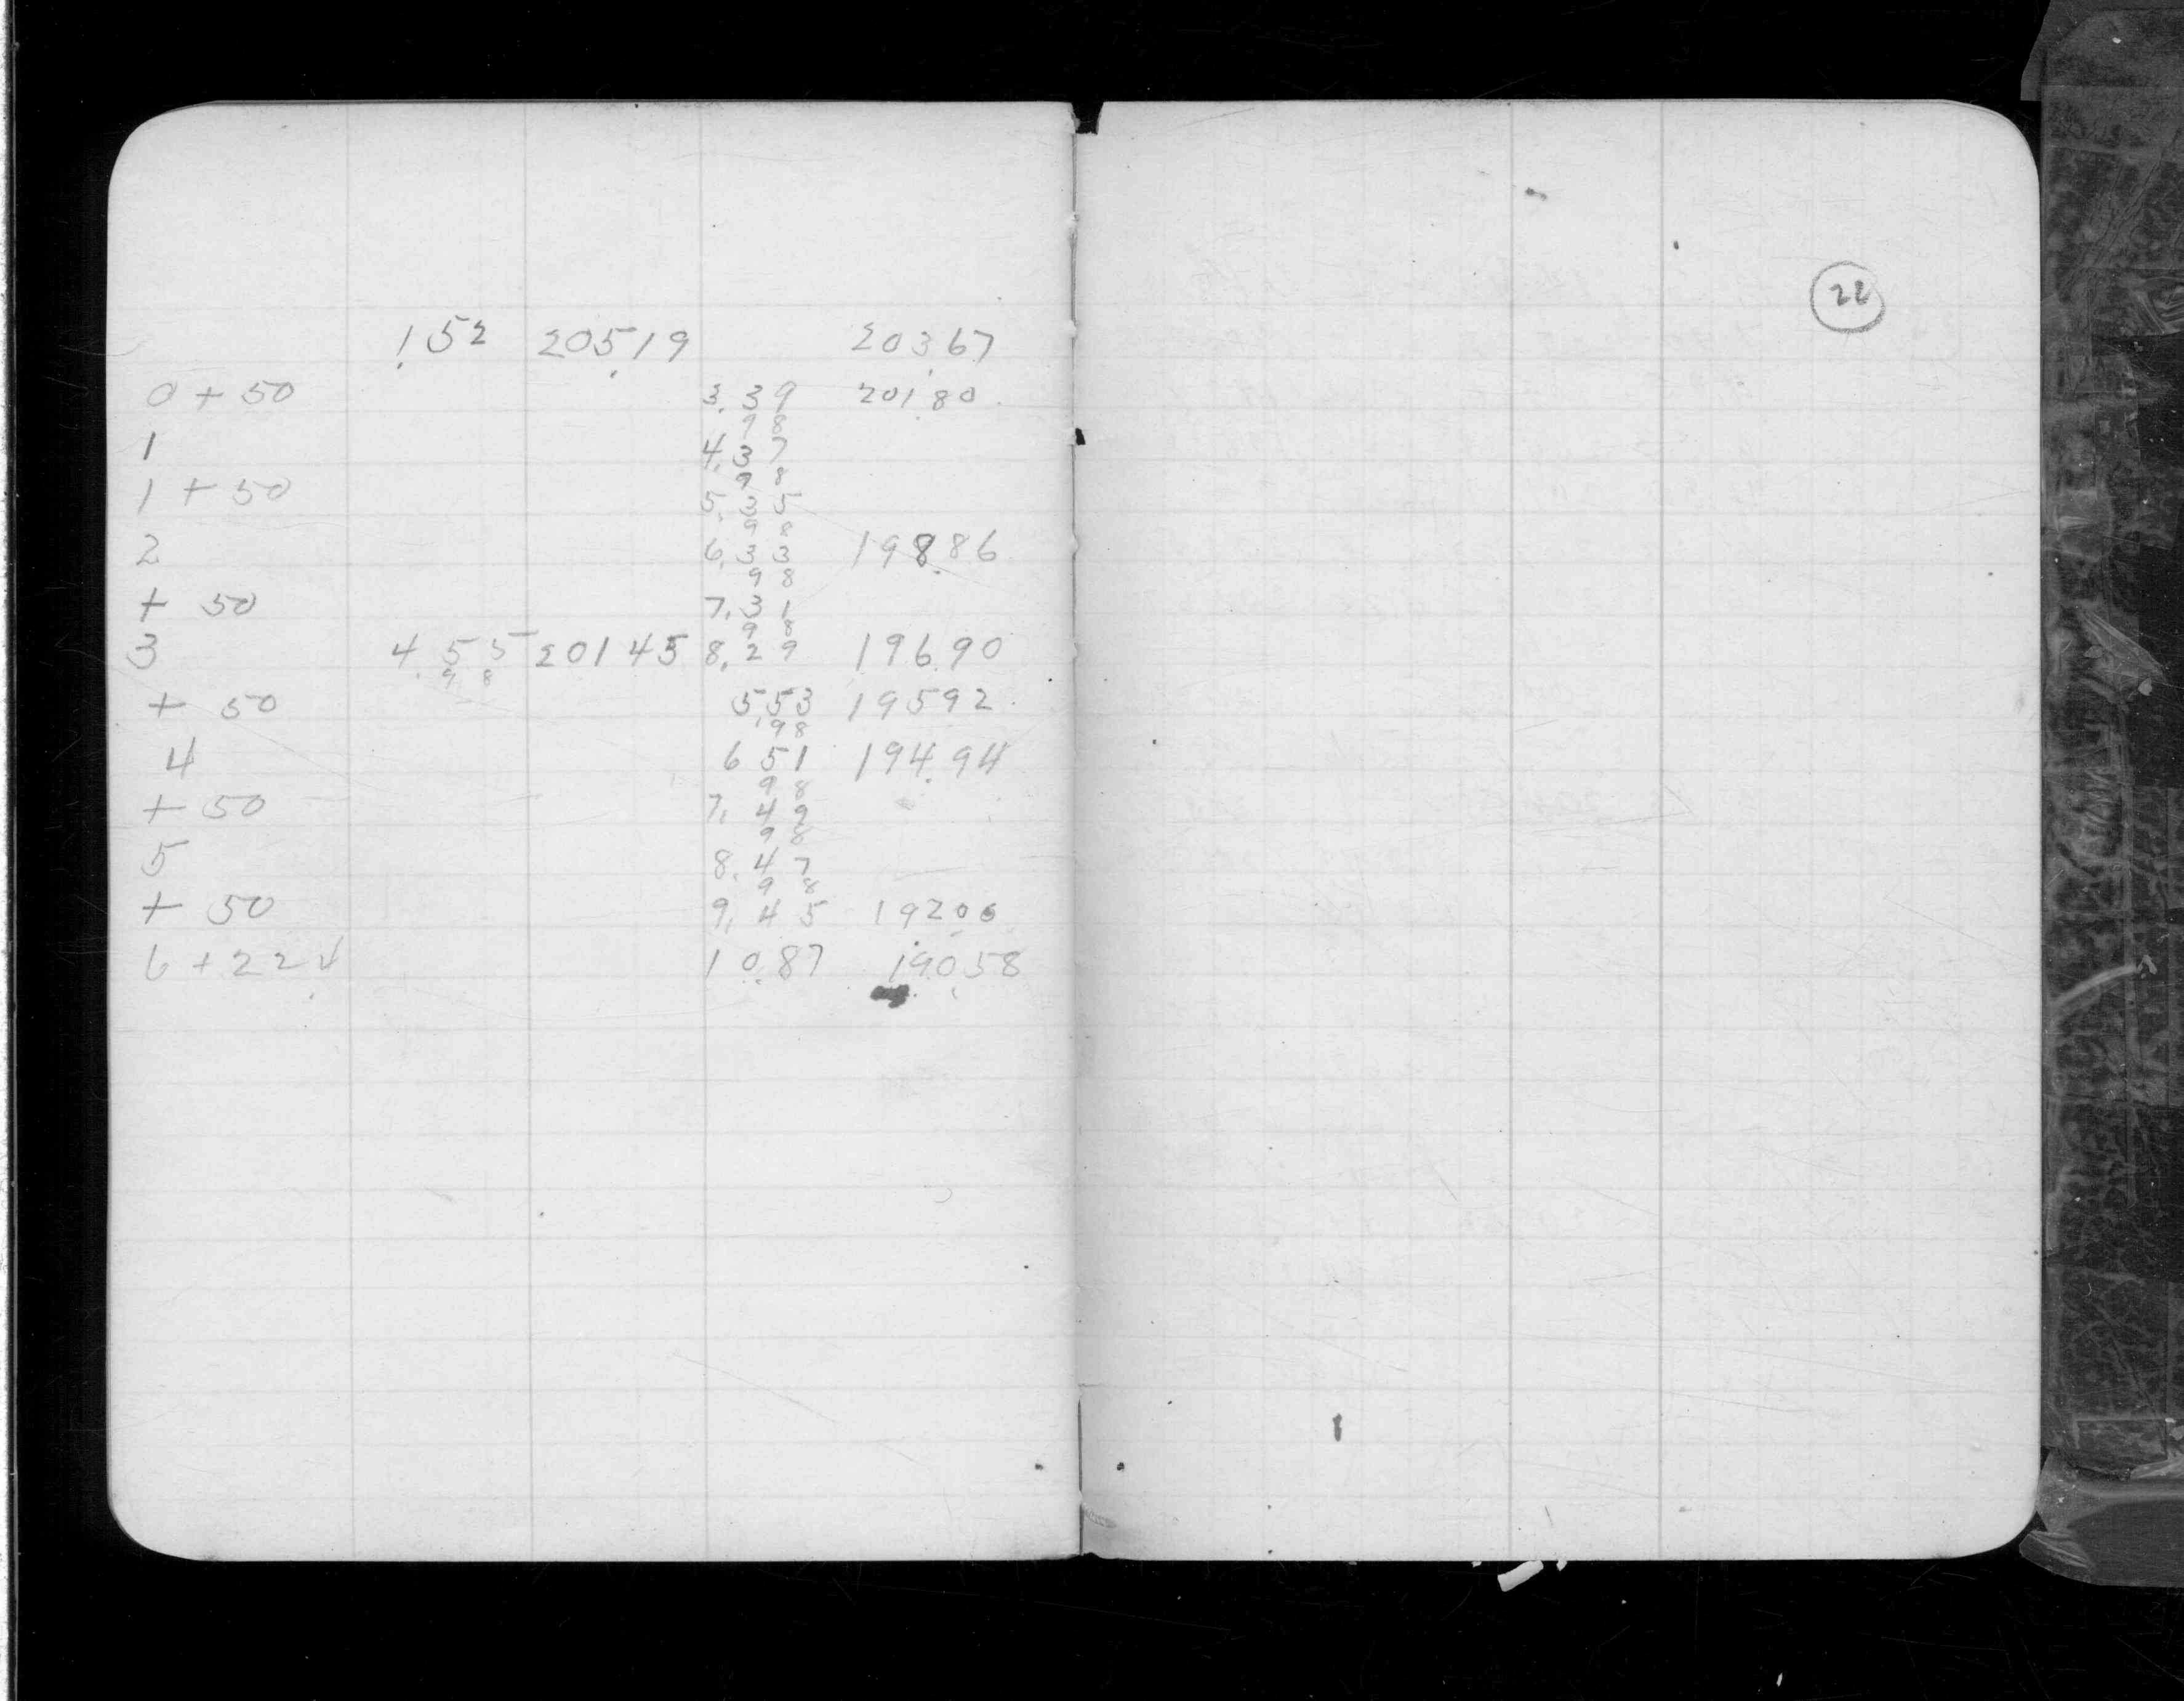 1.52 205.19 203.67
0 + 50 3.39 201.80
98
1 4.37
98
1 + 50 5.35
98
2 6.33 198.86
98
+ 50 7.31
98
3 4.55 20145 8.29 196.90
98
+ 50 5.53 19592
98
4 6 51 194.94
98
+ 50 7.49
98
5 8.47
98
+ 50 9.45 192.06
6 + 22 10.87 190.58
22